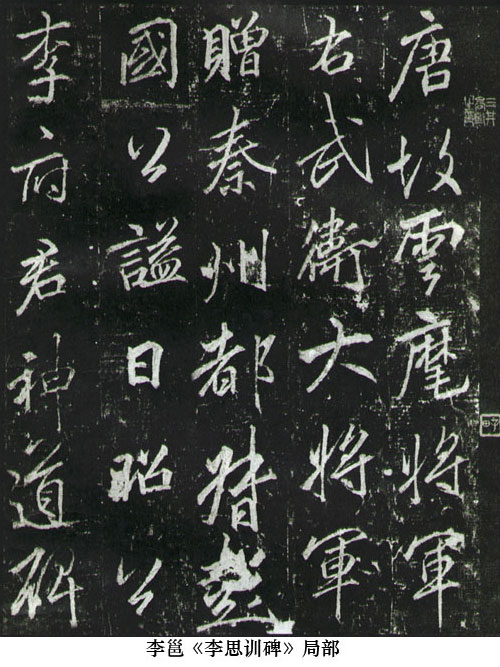 唐故雲麾將軍
右武衛大將軍
贈秦州都督彭
國公謚曰昭公
李府君神道碑
李邕《李思训碑》局部